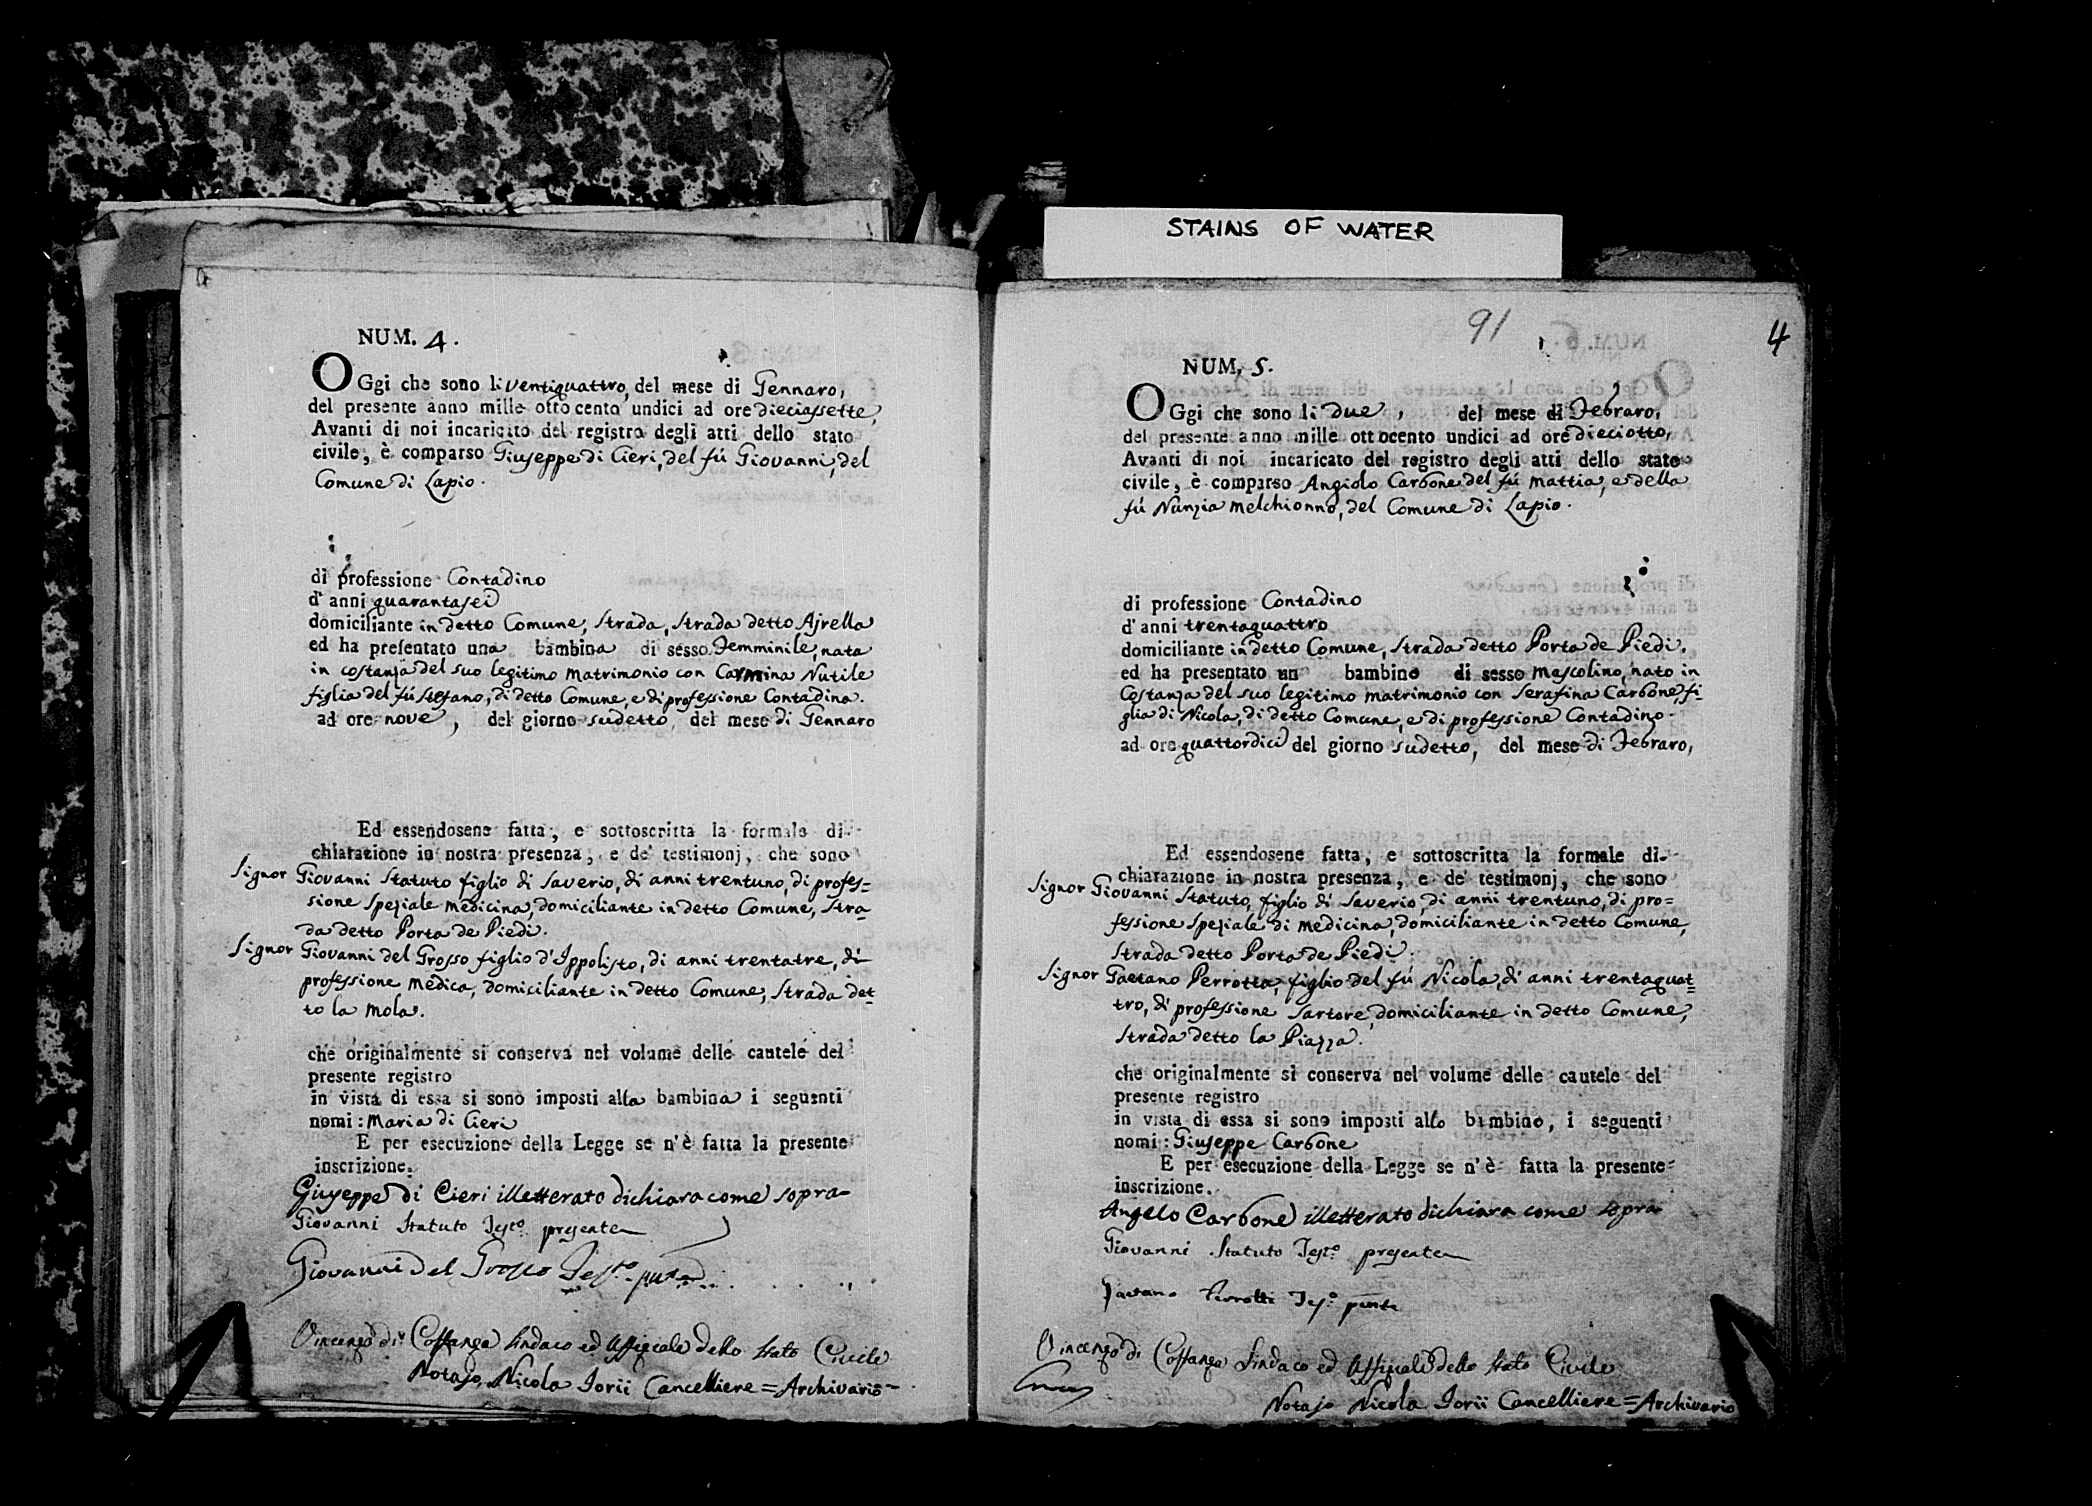 STAINS OF WATER
NUM. 4.
OGgi che sono li ventiquattro, del mese di Gennaro,
del presente anno mille ottocento undici ad ore dieciassette,
Avanti di noi incaricato del registro degli atti dello stato
civile, è comparso Giuseppe di Cieri, del fú Giovanni, del
Comune di Lapio.
di professione Contadino
d'anni quarantasei
domiciliante in detto Comune, strada, strada detto Ajrella
ed ha presentato una bambina di sesso Femminile, nata
in costanza del suo legitimo matrimonio con Carmina Nutile
figlia del fú Stefano, di detto Comune, e di professione Contadina.
ad ore nove, del giorno sudetto, del mese di Gennaro
Ed essendosene fatta, e sottoscritta la formale di-
chiarazione in nostra presenza, e de' testimonj, che sono
Signor Giovanni Statuto figlio di Saverio, di anni trentuno, di profes=
sione speziale medicina, domiciliante in detto Comune, stra
da detto Porta de Piedi.
Signor Giovanni del Grosso figlio d'Ippolisto, di anni trentatre, di
professione medica, domiciliante in detto Comune, strada det
to la Mola.
che originalmente si conserva nel volume delle cautele del
presente registro
in vista di essa si sono imposti alla bambina i seguenti
nomi: Maria di Cieri
E per esecuzione della Legge se n'è fatta la presente
inscrizione.
Giuseppe di Cieri illetterato dichiara come sopra
Giovanni Statuto Testo presente
Giovanni del Grosso Testo
Vincenzo di Costanzo Sindaco ed Uffiziale dello stato Civile
Notajo Nicola Iorii Cancelliere = Archivario
91
4
NUM. 5.
OGgi che sono li due, del mese di Febraro,
del presente anno mille ottocento undici ad ore dieciotto,
Avanti di noi incaricato del registro degli atti dello stato
civile, è comparso Angiolo Carbone del fú Mattia, e della
fú Nunzia Melchionno, del Comune di Lapio.
di professione Contadino
d'anni trentaquattro
domiciliante in detto Comune, strada detto Porta de Piedi.
ed ha presentato un bambino di sesso mascolino, nato in
Costanza del suo legitimo matrimonio con Serafina Carbone, fi-
glia di Nicola, di detto Comune, e di professione Contadino.
ad ore quattordici del giorno sudetto, del mese di Febraro,
Ed essendosene fatta, e sottoscritta la formale di-
chiarazione in nostra presenza, e de' testimonj, che sono
Signor Giovanni Statuto, figlio di Saverio, di anni trentuno, di pro=
fessione speziale di medicina, domiciliante in detto Comune,
strada detto Porta de Piedi.
Signor Gaetano Perrotta, figlio del fú Nicola, di anni trentaquat=
tro, di professione Sartore, domiciliante in detto Comune,
strada detto la Piazza.
che originalmente si conserva nel volume delle cautele del
presente registro
in vista di essa si sono imposti allo bambino, i seguenti
nomi: Giuseppe Carbone
E per esecuzione della Legge se n'è fatta la presente
inscrizione.
Angelo Carbone illetterato dichiara come sopra
Giovanni Statuto Testo presente
Gaetano Perrotti Testo
Vincenzo di Costanzo Sindaco ed Uffiziale dello stato Civile
Notajo Nicola Iorii Cancelliere = Archivario